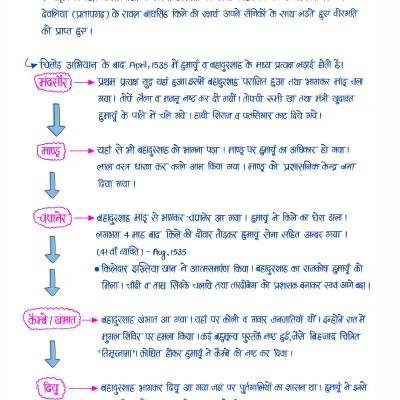 देवलिया (प्रतापगढ़) के रावत बाघसिंह किले की रक्षार्थ अपने सैनिकों के साथ लड़ते हुए वीरगति
को प्राप्त हुए ।
चित्तौड़ अभियान के बाद April, 1535 में हुमायूं व बहादुरशाह के मध्य प्रत्यक्ष लड़ाई होती है।
मंदसौर → प्रथम प्रत्यक्ष युद्ध यहाँ हुआ। इसमें बहादुरशाह पराजित हुआ तथा भागकर मांडू चला
गया । तोपें लैला व मजनू नष्ट कर दी गयीं । तोपची रूमी खां तथा मंत्री खुदावंत
हुमायूं के पाले में चले गये । हाथी सिराज व पतसिंगार काट दिये गये ।
माण्डू → यहाँ से भी बहादुरशाह को भागना पड़ा । माण्डू पर हुमायूं का अधिकार हो गया ।
लाल वस्त्र धारण कर कत्ले आम किया गया । माण्डू को प्रशासनिक केन्द्र बना
दिया गया ।
चंपानेर → बहादुरशाह मांडू से भागकर चंपानेर आ गया । हुमायूं ने किले का घेरा डाला।
लगभग 4 माह बाद किले की दीवार तोड़कर हुमायूं सेना सहित अन्दर गया ।
(41 वाँ व्यक्ति) - Aug, 1535
• किलेदार इख्तिया खान ने आत्मसमर्पण किया । बहादुरशाह का राजकोष हुमायूं को
मिला । चाँदी व ताम्र सिक्के चलाये तथा तारदीबेग को प्रशासक बनाकर स्वयं आगे बढ़ा ।
कैम्बे / खंभात → बहादुरशाह खंभात आ गया । यहाँ पर कोली व गवार जनजातियाँ थीं । इन्होंने रात में
मुगल शिविर पर हमला किया । कई बहुमूल्य पुस्तकें नष्ट हुईं, जैसे बिहजाद चित्रित
'तिमूरनामा' । क्रोधित होकर हुमायूं ने कैम्बे को नष्ट कर दिया ।
दियू → बहादुरशाह भागकर दियू आ गया जहां पर पुर्तगालियों का शासन था । हुमायूं ने इनसे